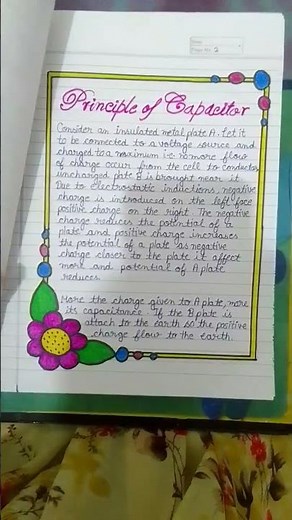 Page No. 2
Principle of Capacitor
Consider an insulated metal plate A. Let it
to be connected to a voltage source and
charged to a maximum i.e no more flow
of charge occur from the cell to conductor
uncharged plate B is brought near it.
Due to electrostatic inductions, negative
charge is introduced on the left face
positive charge on the right. The negative
charge reduces the potential of a
plate and positive charge increases
the potential of a plate as negative
charge closer to the plate it affect
more and potential of A plate
reduces.
More the charge given to A plate, more
its capacitance. If the B plate is
attach to the earth so the positive
charge flow to the earth.